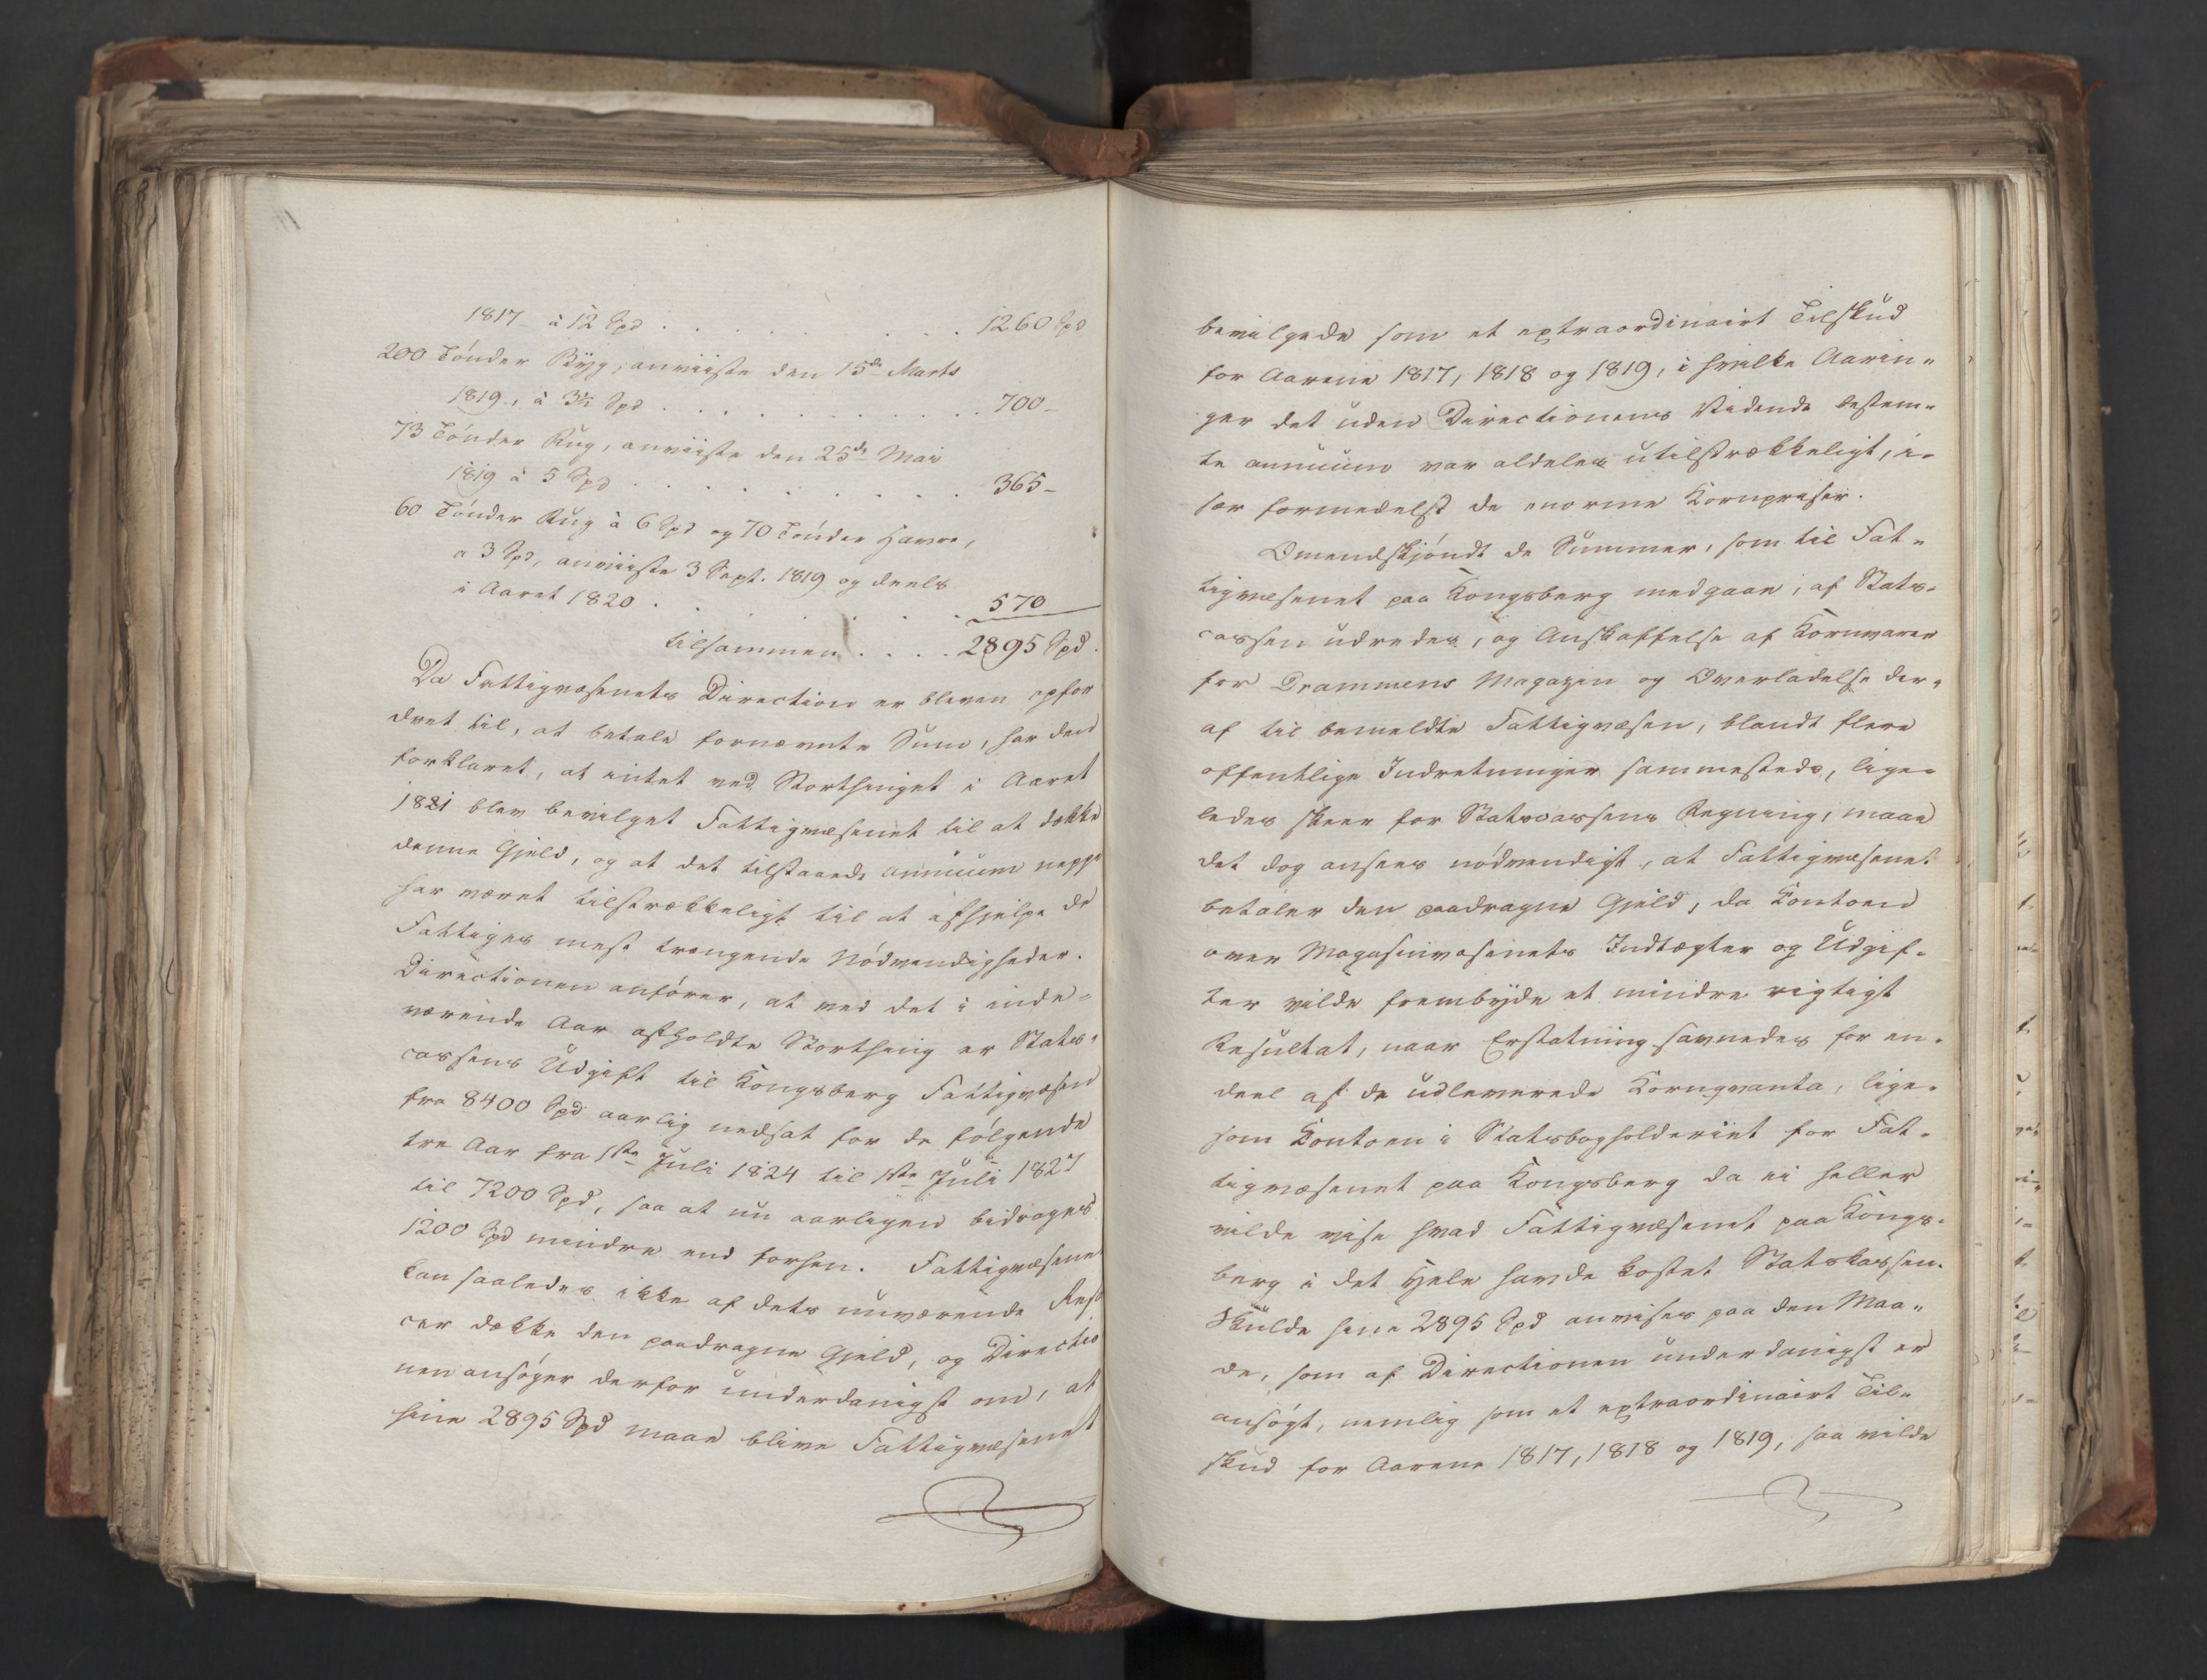 1817 à 12 Spd . . . . . . . . . 1260 Spd
200 Tónder Byg, anviiste den 15de Marts
1819, à 3½ Spd . . . . . . . . . 700 -
73 Tónder Rug, anviiste den 25de Mai
1819 à 5 Spd . . . . . . . . . 365 -
60 Tónder Rug à 6 Spd og 70 Tónder Havre,
a 3 Spd, anviiste 3 Sept. 1819 og deels
i Aaret 1820 . . . . . . 570
tilsammen . . . . 2895 Spd.
Da Fattigvæsenets Direction er bleven opfor
dret til, at betale fornævnte Sum, har den
forklaret, at intet ved Storthinget i Aaret
1821 blev bevilget Fattigvæsenet til at dække
denne Gjeld, og at det tilstaaede annuum neppe
har været tilstrækkeligt til at afhjelpe de
Fattiges mest trængende Nódvendigheder.
Directionen anfórer, at ved det i inde=
værende Aar afholdte Storthing er Stats=
cassens Udgift til Kongsberg Fattigvæsen
fra 8400 Spd aarlig nedsat for de fólgende
tre Aar fra 1ste Juli 1824 til 1ste Juli 1827
til 7200 Spd, saa at nu aarligen bidrages
1200 Spd mindre end forhen. Fattigvæsenet
kan saaledes ikke af dets nuværende Ress
cer dække den paadragne Gjeld, og Directio
nen ansóger derfor underdanigst om, at
hine 2895 Spd maae blive Fattigvæsenet
bevilgede som et extraordinairt Tilskud
for Aarene 1817, 1818 og 1819, i hvilke Aarin=
ger det uden Directionens Vidende bestem=
te annuum var aldeles utilstrækkeligt, i=
sær formedelst de enorme Kornpriser.
Omendskjóndt de Summer, som til Fat=
tigvæsenet paa Kongsberg medgaae, af Stats=
cassen udredes, og Anskaffelse af Kornvarer
for Drammens Magazin og Overladelse der=
af til bemeldte Fattigvæsen, blandt flere
offentlige Indretninger sammesteds, lige=
ledes skeer for Statscassens Regning, maae
det dog ansees nódvendigt, at Fattigvæsenet
betaler den paadragne Gjeld, da Contoen
over Magasinvæsenets Indtægter og Udgif=
ter vilde frembyde et mindre rigtigt
Resultat, naar Erstatning savnedes for en=
deel af de udleverede Kornqvanta, lige=
som Contoen i Statsbogholderiet for Fat=
tigvæsenet paa Kongsberg da ei heller
vilde vise hvad Fattigvæsenet paa Kongs=
berg i det Hele havde kostet Statskassen.
Skulde hine 2895 Spd anvises paa den Maa=
de, som af Directionen underdanigst er
ansógt, nemlig som et extraordinairt Til=
skud for Aarene 1817, 1818 og 1819, saa vilde